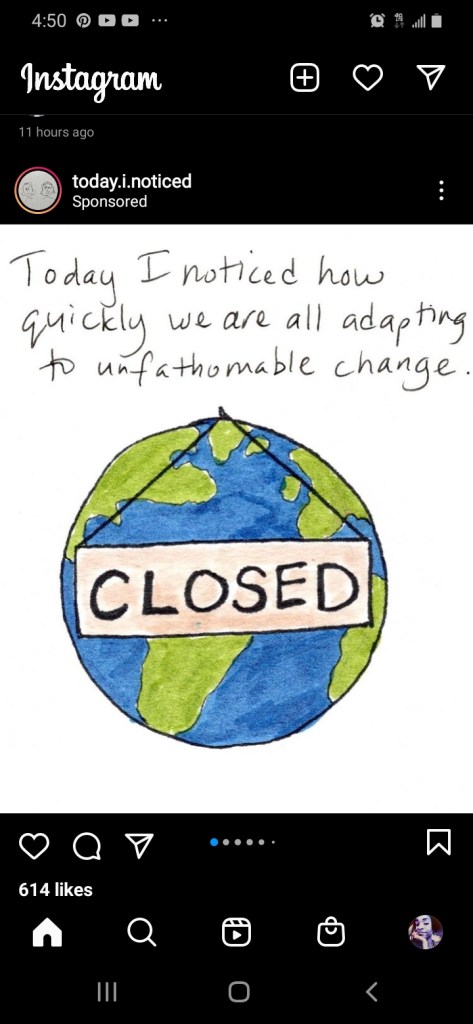 4:50
Instagram
11 hours ago
today.i.noticed
Sponsored
Today I noticed how
quickly we are all adapting
to unfathomable change.
CLOSED
614 likes